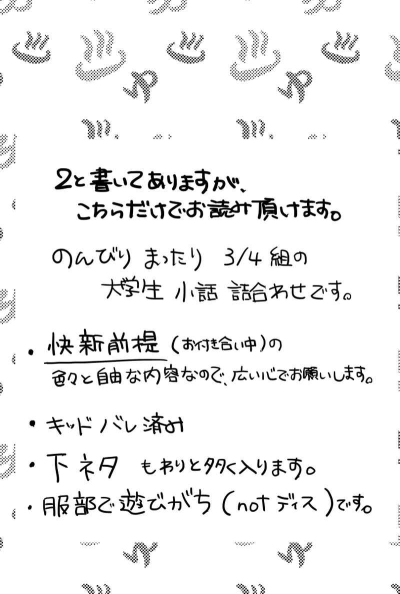 2と書いてありますが、
こちらだけでお読み頂けます。
のんびり まったり 3/4組の
大学生 小話 詰合わせです。
・快新前提(お付き合い中)の
色々と自由な内容なので、広い心でお願いします。
・キッドバレ済み
・下ネタ もわりと多く入ります。
・服部で遊びがち(notディス)です。